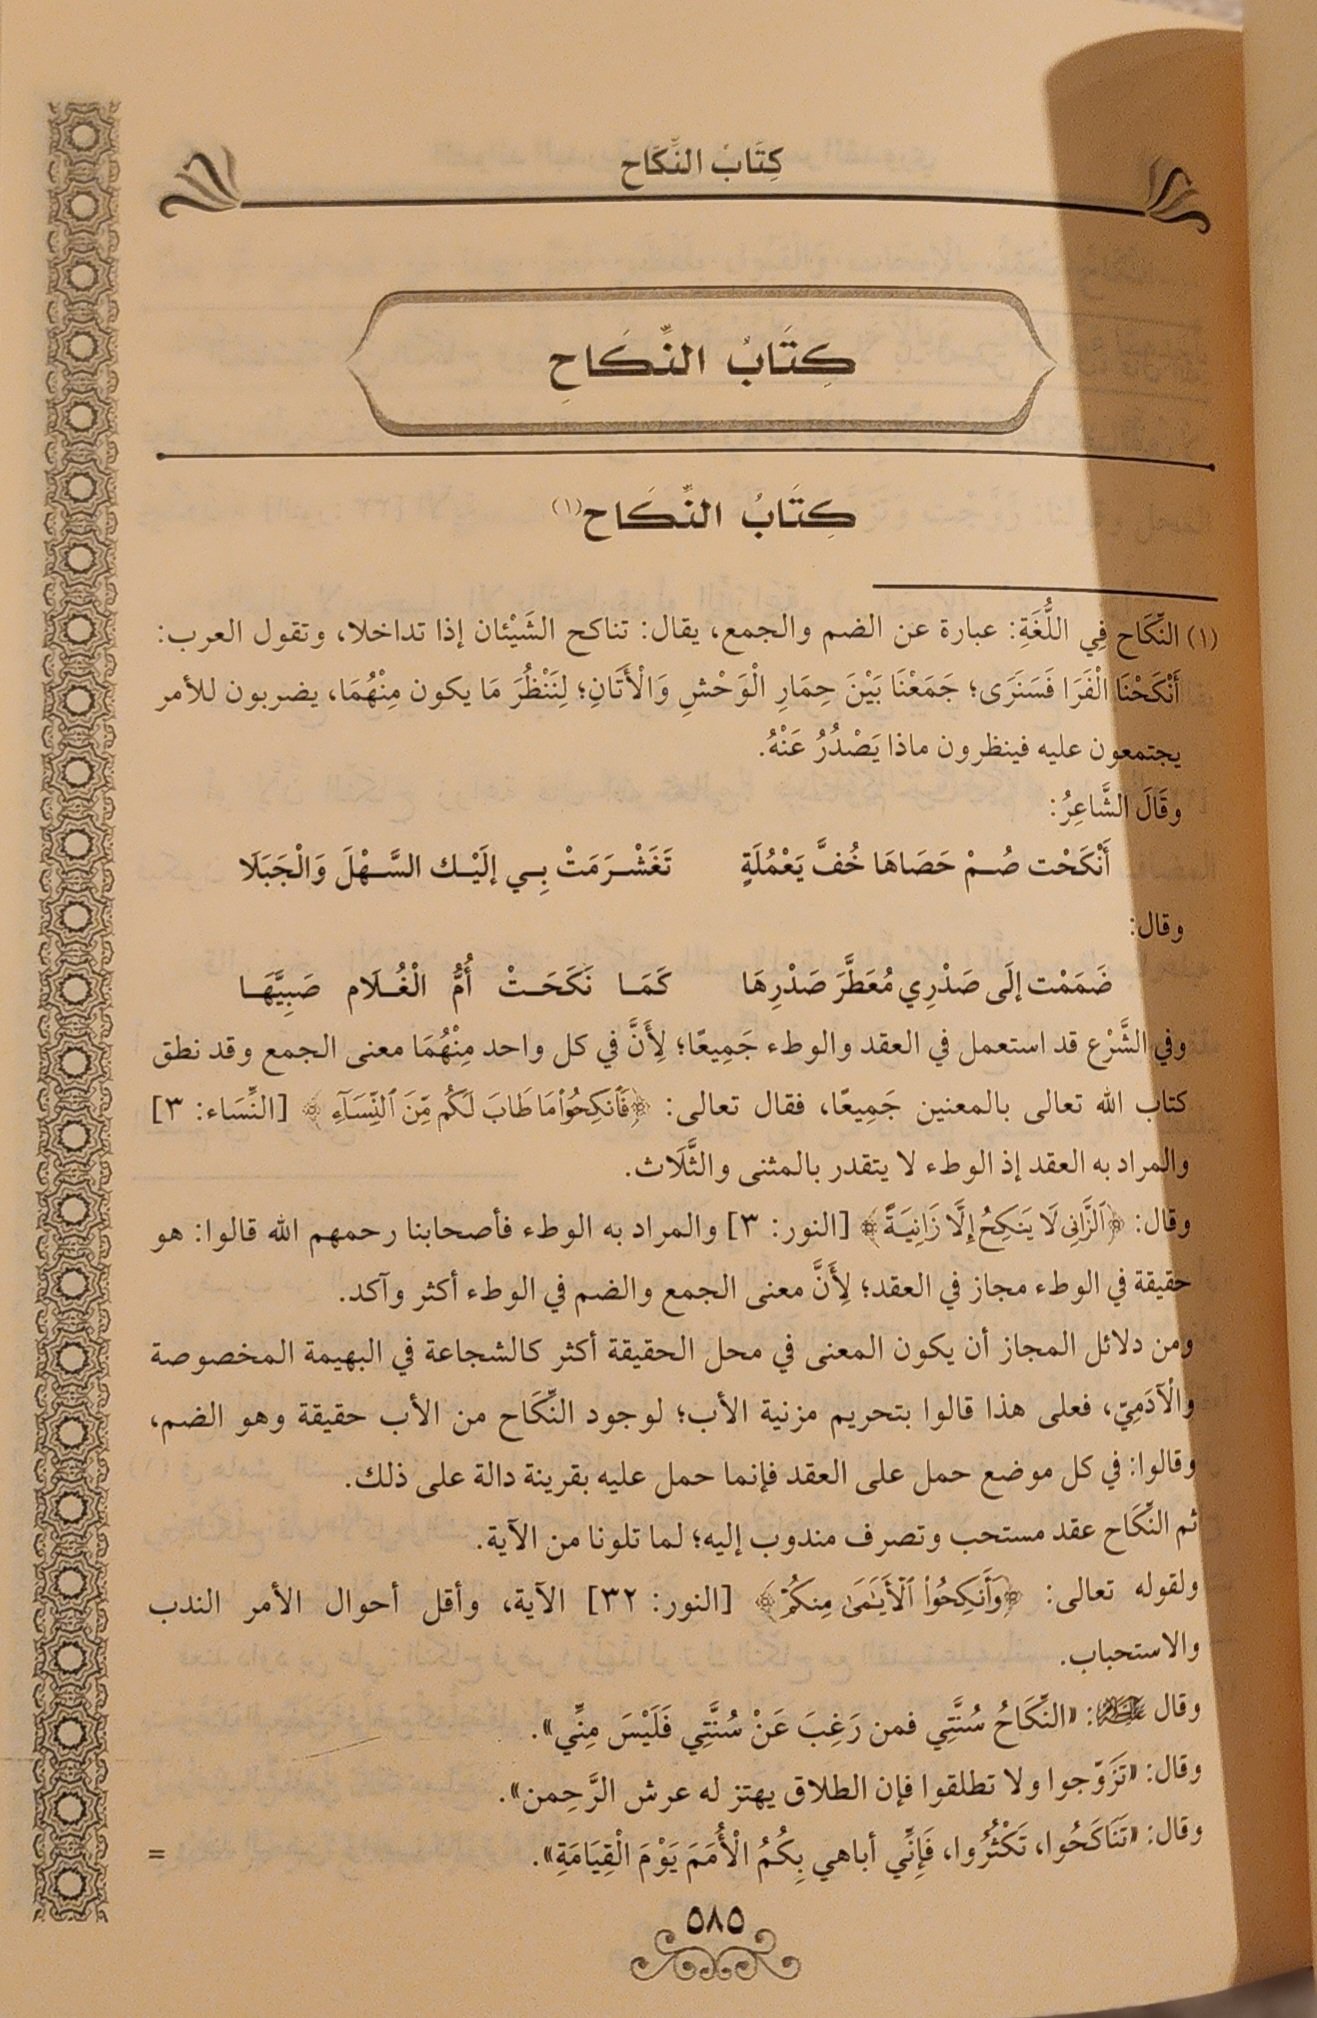 كِتَابُ النِّكَاحِ
كِتَابُ النِّكَاحِ
كِتَابُ النِّكَاحِ(١)
(١) النِّكَاح فِي اللُّغَةِ: عبارة عن الضم والجمع، يقال: تناكح الشَيْئان إذا تداخلا، وتقول العرب:
أَنْكَحْنَا الْفَرَا فَسَنَرَى؛ جَمَعْنَا بَيْنَ حِمَارِ الْوَحْشِ وَالْأَتَانِ؛ لِنَنْظُرَ مَا يكون مِنْهُمَا، يضربون للأمر
يجتمعون عليه فينظرون ماذا يَصْدُرُ عَنْهُ.
وقَالَ الشَّاعِرُ:
أَنْكَحْت صُمْ حَصَاهَا خُفَّ يَعْمُلَةٍ تَغَشْرَمَتْ بِي إلَيْك السَّهْلَ وَالْجَبَلَا
وقال:
ضَمَمْت إلَى صَدْرِي مُعَطَّرَ صَدْرِهَا كَمَا نَكَحَتْ أُمُّ الْغُلَام صَبِيَّهَا
وفي الشَّرْع قد استعمل في العقد والوطء جَمِيعًا؛ لِأَنَّ في كل واحد مِنْهُمَا معنى الجمع وقد نطق
كتاب الله تعالى بالمعنين جَمِيعًا، فقال تعالى: ﴿فَٱنكِحُوا۟ مَا طَابَ لَكُم مِّنَ ٱلنِّسَآءِ﴾ [النِّسَاء: ٣]
والمراد به العقد إذ الوطء لا يتقدر بالمثنى والثَّلَاث.
وقال: ﴿ٱلزَّانِى لَا يَنكِحُ إِلَّا زَانِيَةً﴾ [النور: ٣] والمراد به الوطء فأصحابنا رحمهم الله قالوا: هو
حقيقة في الوطء مجاز في العقد؛ لِأَنَّ معنى الجمع والضم في الوطء أكثر وآكد.
ومن دلائل المجاز أن يكون المعنى في محل الحقيقة أكثر كالشجاعة في البهيمة المخصوصة
والْآدَمِيّ، فعلى هذا قالوا بتحريم مزنية الأب؛ لوجود النِّكَاح من الأب حقيقة وهو الضم،
وقالوا: في كل موضع حمل على العقد فإنما حمل عليه بقرينة دالة على ذلك.
ثم النِّكَاح عقد مستحب وتصرف مندوب إليه؛ لما تلونا من الآية.
ولقوله تعالى: ﴿وَأَنكِحُوا۟ ٱلْأَيَـٰمَىٰ مِنكُمْ﴾ [النور: ٣٢] الآية، وأقل أحوال الأمر الندب
والاستحباب.
وقال عليه السلام: «النِّكَاحُ سُنَّتِي فمن رَغِبَ عَنْ سُنَّتِي فَلَيْسَ مِنِّي».
وقال: «تَزَوّجوا ولا تطلقوا فإن الطلاق يهتز له عرش الرَّحِمن».
وقال: «تَنَاكَحُوا، تَكْثُرُوا، فَإِنِّي أباهي بِكُمُ الْأُمَمَ يَوْمَ الْقِيَامَةِ». =
٥٨٥